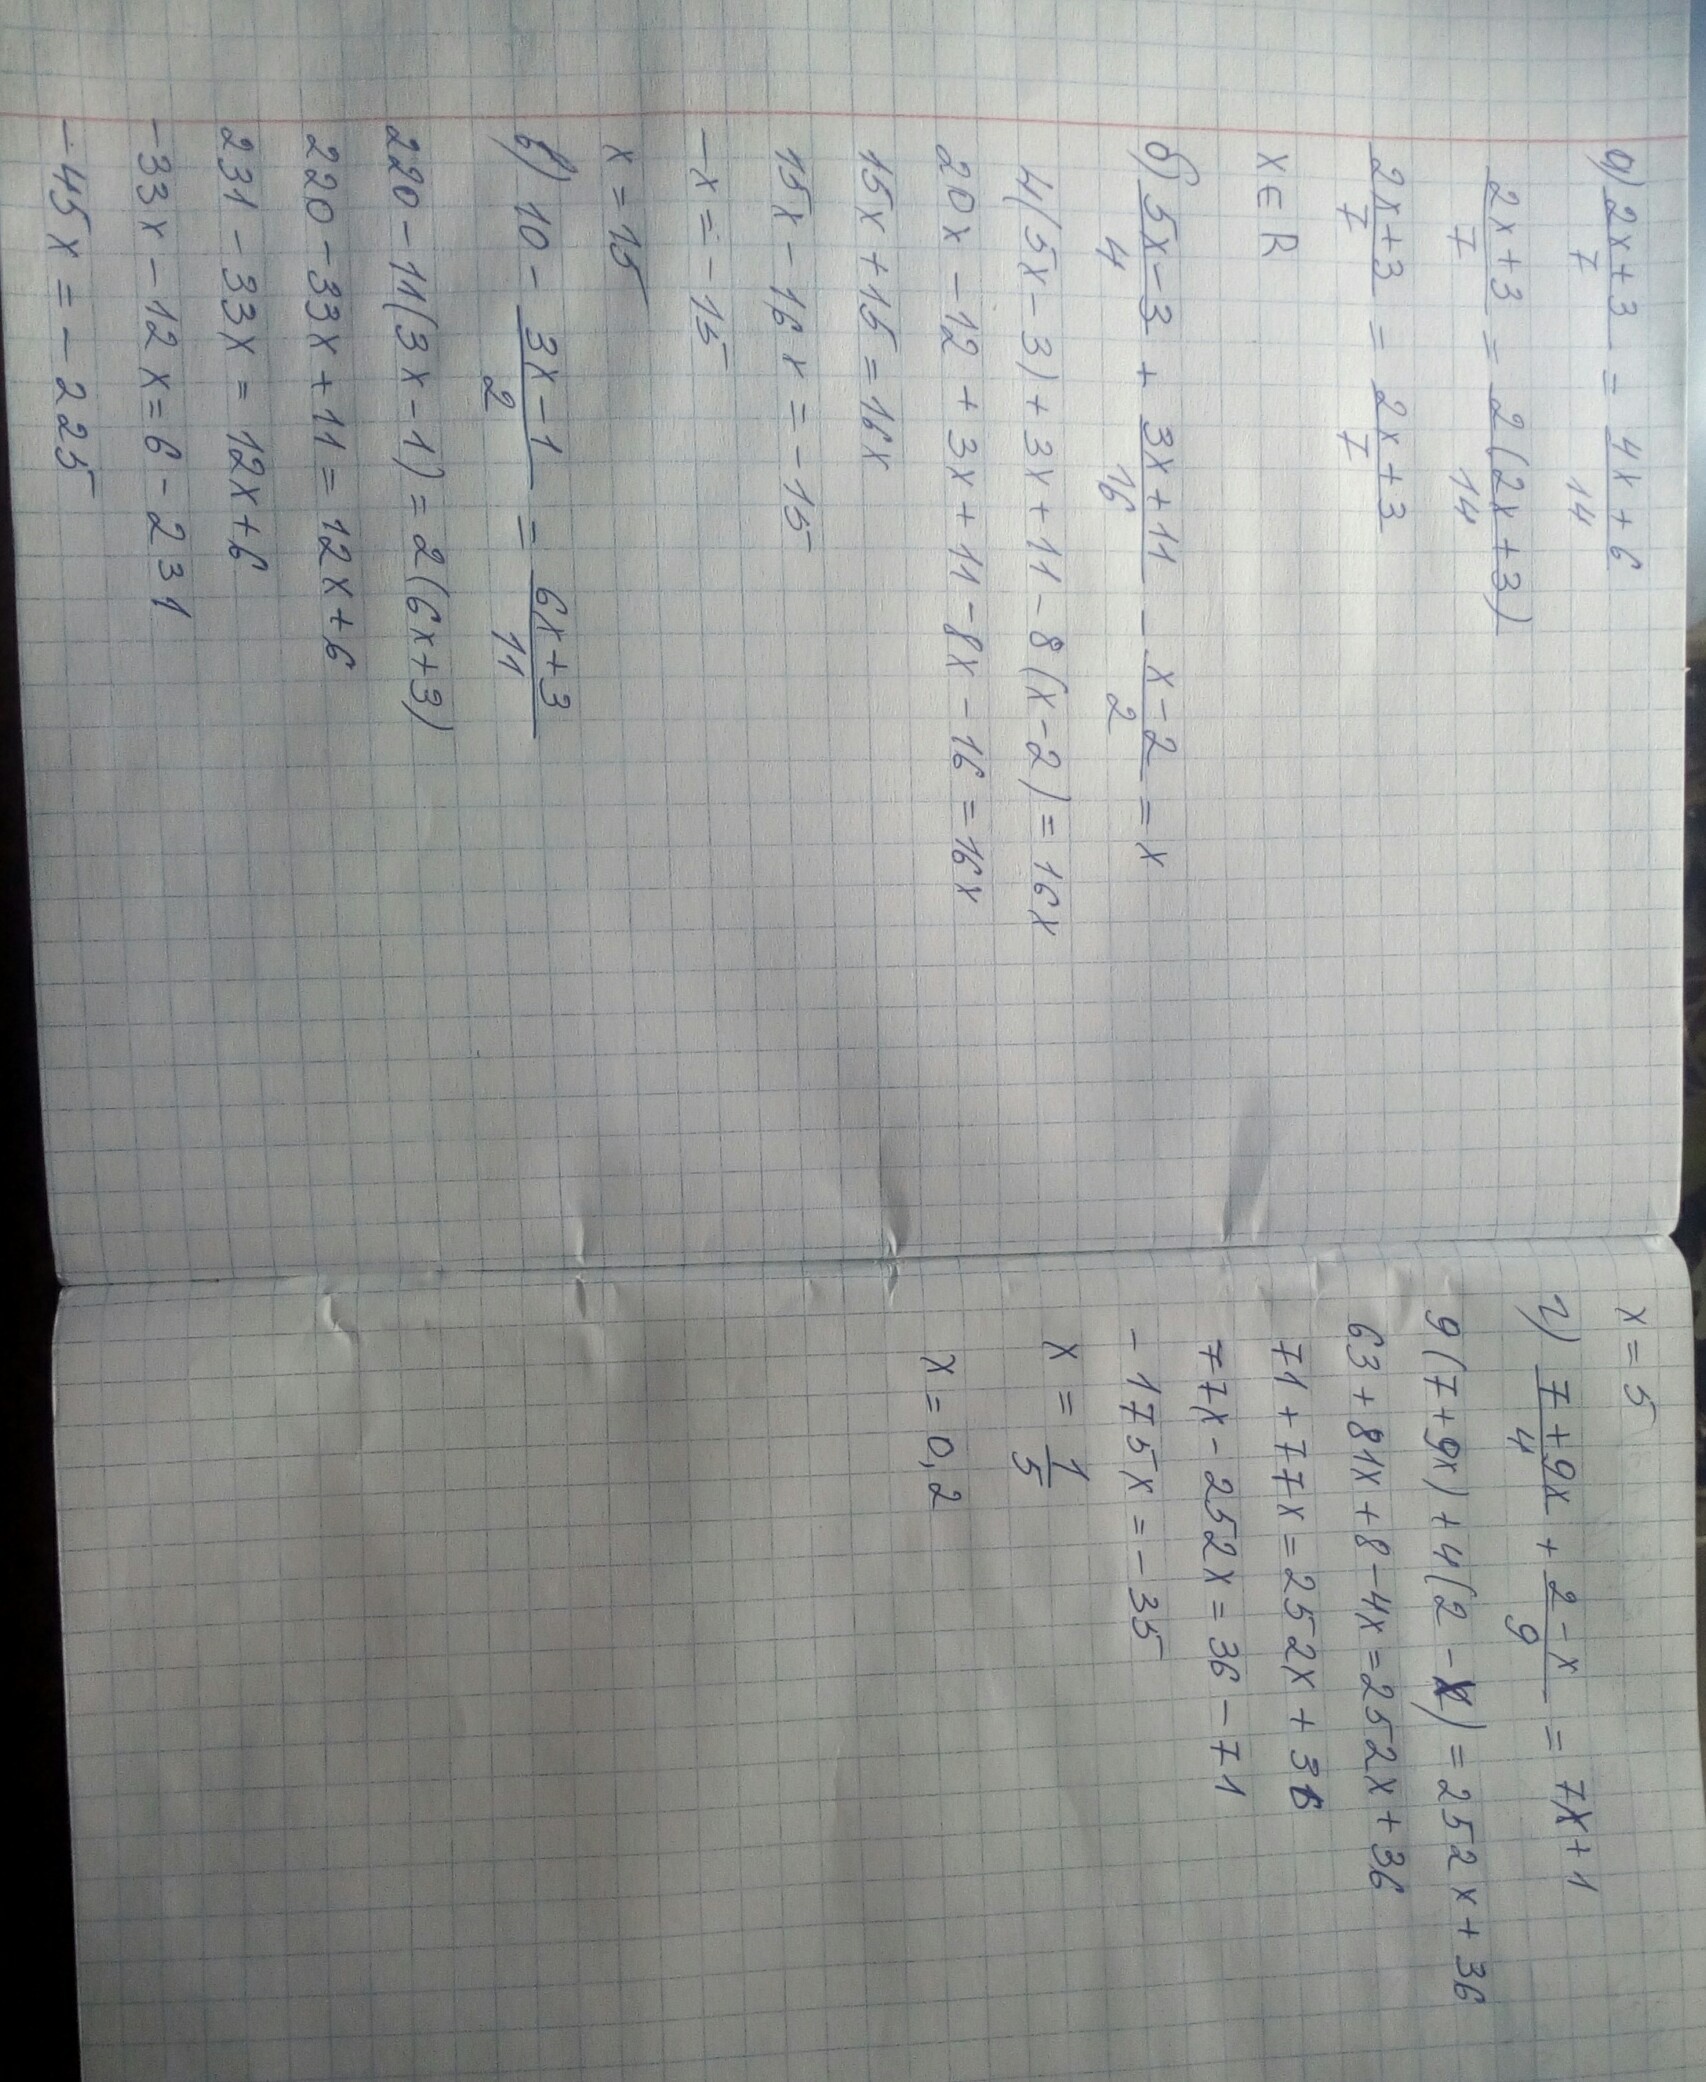 а) (2x+3)/7 = (4x+6)/14
(2x+3)/7 = 2(2x+3)/14
(2x+3)/7 = (2x+3)/7
x ∈ R
б) (5x-3)/4 + (3x+11)/16 - (x-2)/2 = x
4(5x-3)+3x+11-8(x-2)=16x
20x-12+3x+11-8x-16=16x
15x+15=16x
15x-16x=-15
-x=-15
x=15
в) 10 - (3x-1)/2 = (6x+3)/11
220-11(3x-1)=2(6x+3)
220-33x+11=12x+6
231-33x=12x+6
-33x-12x=6-231
-45x=-225
x=5
г) (7+9x)/4 + (2-x)/9 = 7x+1
9(7+9x)+4(2-x)=252x+36
63+81x+8-4x=252x+36
71+77x=252x+36
77x-252x=36-71
-175x=-35
x = 1/5
x=0,2